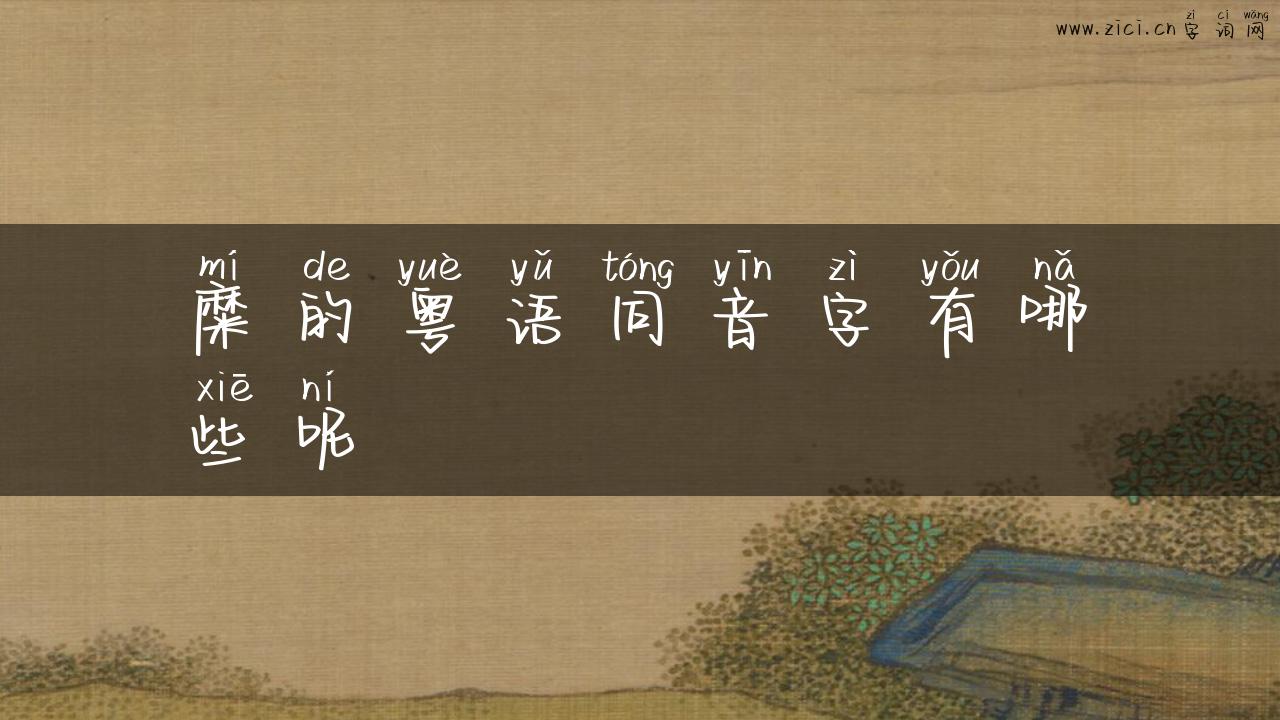 zì cí wǎng
www.zici.cn字词网
mí de yuè yǔ tóng yīn zì yǒu nǎ
糜的粤语同音字有哪
xiē ní
些呢